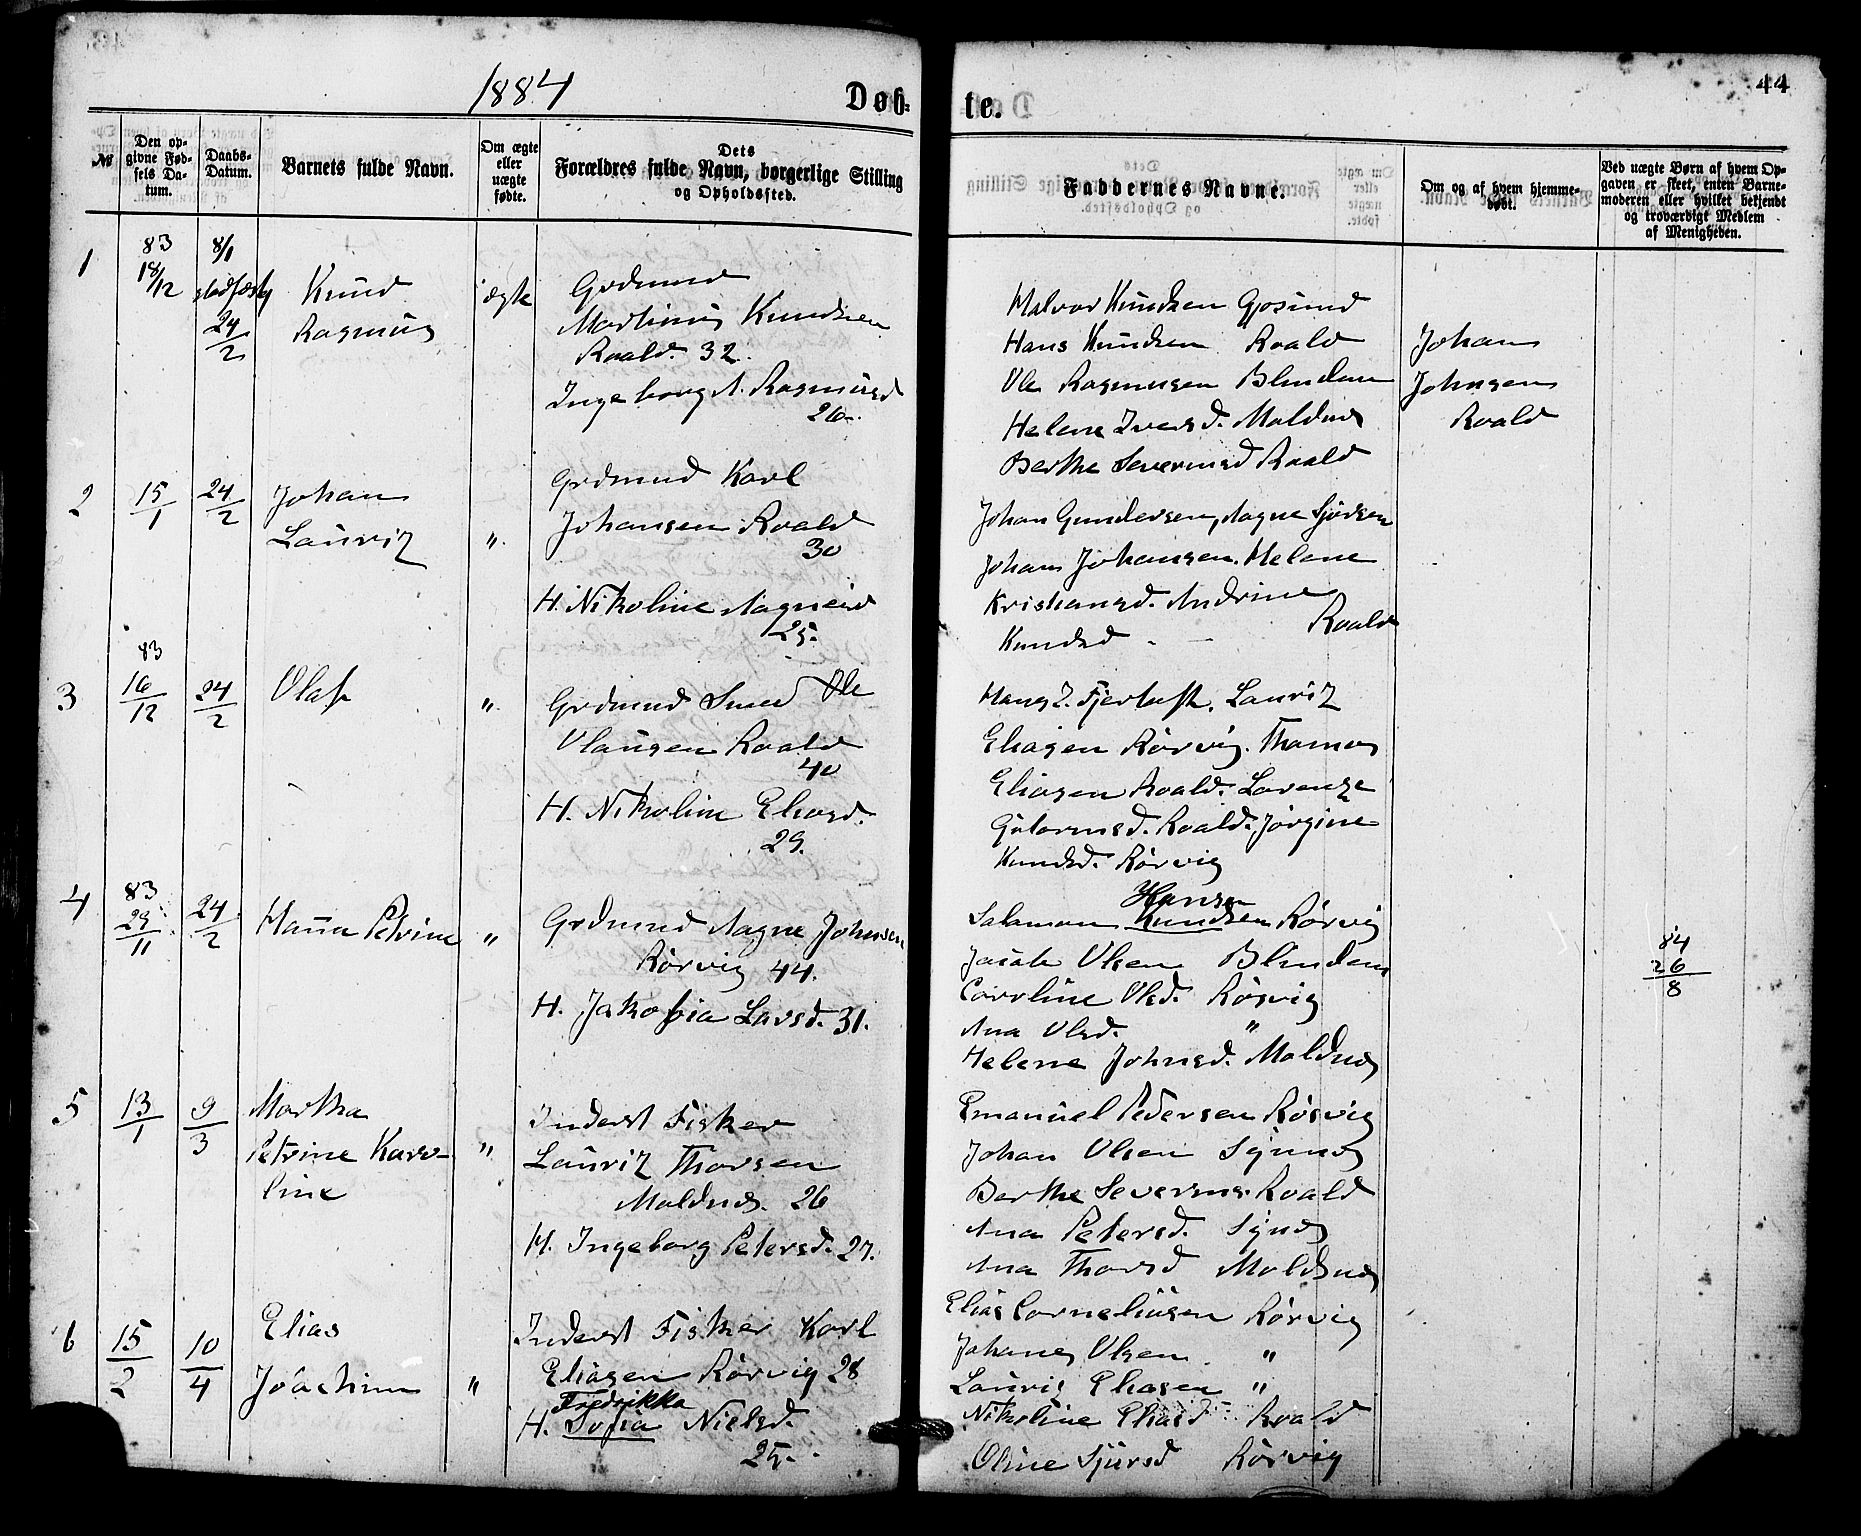 1884
Døb-
te.
44
№
Den op-
givne Fød-
sels Da-
tum.
Daabs-
Datum.
Barnets fulde Navn.
Om ægte
eller
uægte
fødte.
Dets
Forældres fulde Navn, borgerlige Stilling
og Opholdssted.
Faddernes Navne.
Om og af hvem hjemme-
døbt.
Ved uægte Børn af hvem Op-
gaven er skeet, enten Barne-
moderen eller hvilket bekjendt
og troværdigt Medlem
af Menigheden.
1
83
18/12
8/1
stadfæst
24/2
Knud
Rasmus
ægte
Grdmand
Martinus Knudsen
Roald. 32.
Ingeborg A. Rasmusd
26.
Halvor Knudsen Gjøsund
Hans Knudsen Roald
Ole Rasmusen Blindem
Helene Iversd. Moldnæs
Berthe Severinsd Roald
Johan
Johnsen
Roald
2
15/1
24/2
Johan
Lauriz
"
Grdmand Karl
Johansen Roald
30
H. Nikoline Aagesd
25.
Johan Gundersen, Aagne Sjursen
Johan Johansen. Helene
Kristiansd. Andrine
Knudsd - - Roald
3
83
16/12
24/2
Olaf
"
Grdmand Smed Ole
Olausen Roald
40
H. Nikoline Eliasd.
29.
Hans I. Fjertoft. Lauriz
Eliasen Rørvig. Thomas
Eliasen Roald. Lorense
Gutormsd. Roald. Jørgine
Knudsd. Rørvig
4
83
29/11
24/2
Hanna Petrine
"
Grdmand Aagne Johnsen
Rørvig 44.
H. Jakobia Larsd. 31.
Hansen
Salamon Knudsen Rørvig
Jacob Olsen Blindem
Caroline Olsd. Rørvig
Ana Olsd. "
Helene Johnsd. Moldnæs
84
26/8
5
13/1
9/3
Martha
Petrine Karo-
line
"
Inderst Fisker
Lauriz Thorsen
Moldnæs. 26
H. Ingeborg Petersd. 27.
Emanuel Pedersen Rørvig
Johan Olsen Synnæs
Berthe Severins. Roald
Ana Petersd. Synæs
Ana Thorsd Moldnæs
6
15/2
10/4
Elias
Joachim
"
Inderst Fisker Karl
Eliasen Rørvig 28
Fredrikka
H. Sofia Nielsd.
25.
Elias Corneliusen Rørvig
Johanes Olsen "
Lauris Eliasen "
Nikoline Eliasd Roald
Oline Sjursd Rørvig